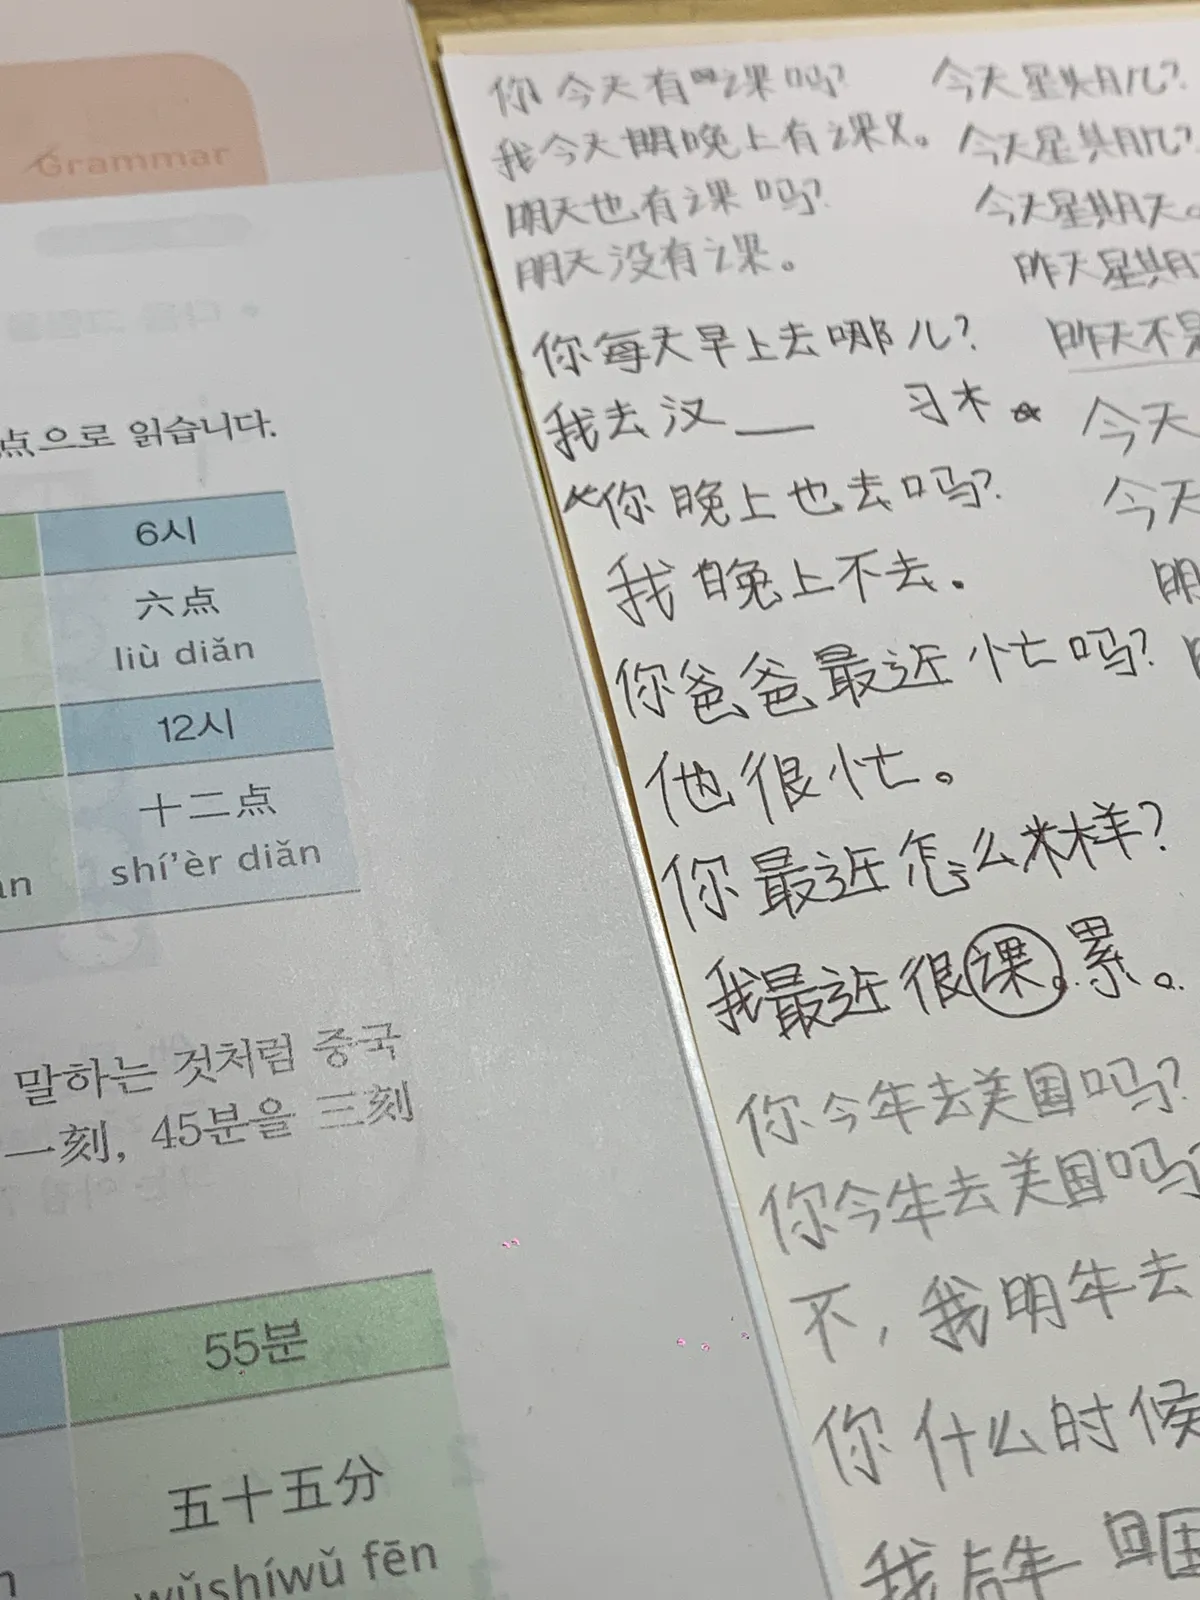 Grammar
点으로 읽습니다.
6시
六点
liù diǎn
12시
十二点
shí'èr diǎn
말하는 것처럼 중국
一刻, 45분을 三刻
55분
五十五分
wǔshíwǔ fēn
你今天有课吗?
我今天晚上有课。
明天也有课吗?
明天没有课。
你每天早上去哪儿?
我去汉__ 习木
你晚上也去吗?
我晚上不去.
你爸爸最近忙吗?
他很忙。
你最近怎么样?
我最近很课。累。
你今年去美国吗?
你今年去美国吗?
不, 我明年去
你什么时候
我后年回国
今天星期几?
今天星期几?
今天星期天。
昨天星期
昨天不是
今天
今天
明